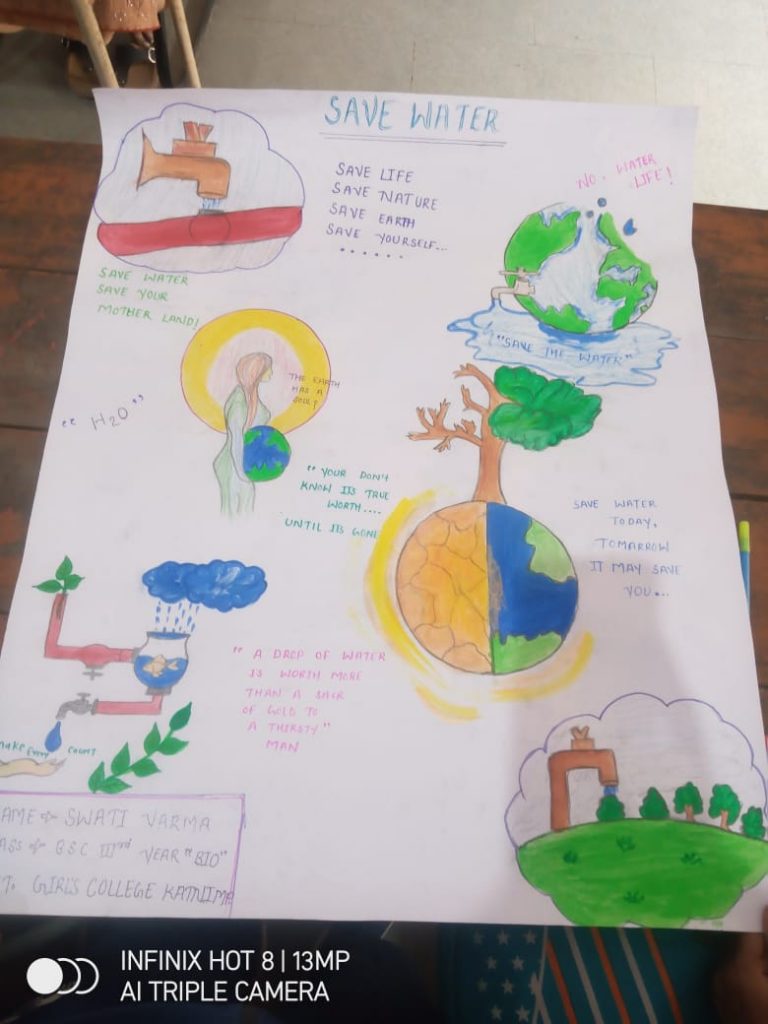 SAVE WATER
SAVE LIFE
SAVE NATURE
SAVE EARTH
SAVE YOURSELF...
......
NO. WATER
LIFE!
SAVE WATER
SAVE YOUR
MOTHER LAND!
"SAVE THE WATER"
THE EARTH
HAS A
SOUL!
"H2O"
"YOUR DON'T
KNOW ITS TRUE
WORTH....
UNTIL ITS GONE
SAVE WATER
TODAY,
TOMARROW
IT MAY SAVE
YOU...
"A DROP OF WATER
IS WORTH MORE
THAN A SACK
OF GOLD TO
A THIRSTY"
MAN
make Every Count
AME SWATI VARMA
ASS BSC IIIrd YEAR "BIO"
T. GIRLS COLLEGE KATNI MP
INFINIX HOT 8 | 13MP
AI TRIPLE CAMERA